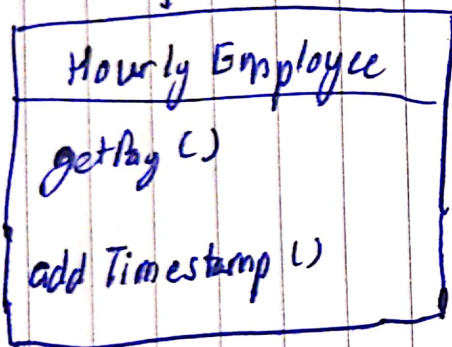 Hourly Employee
getPay ()
add Timestamp ()